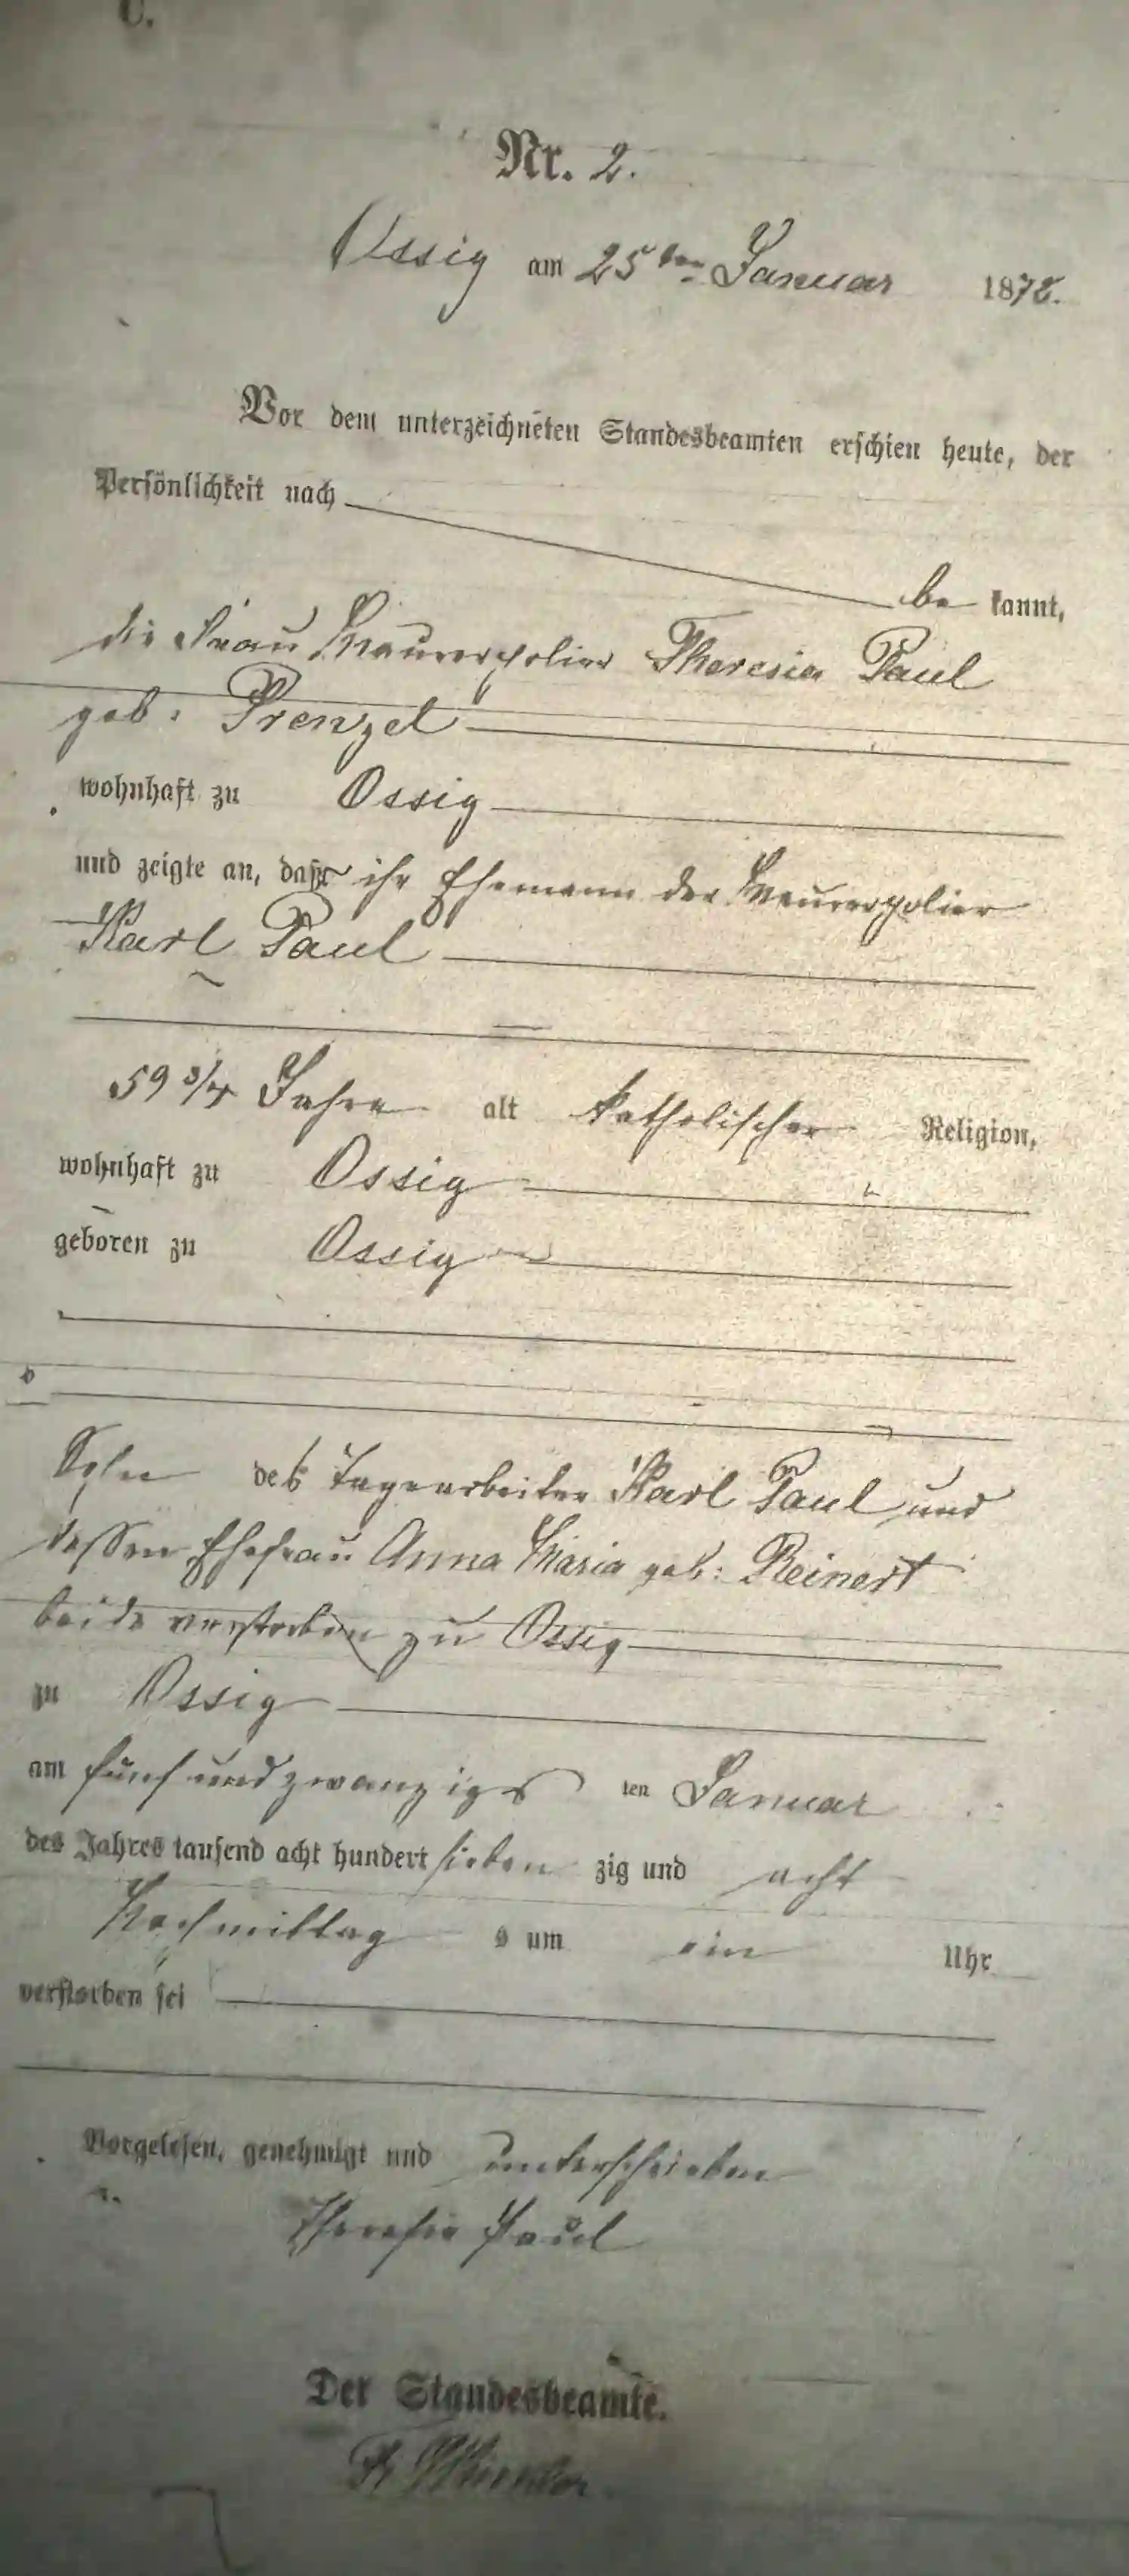 C.
Nr. 2.
Ossig am 25ten Januar 1878.
Vor dem unterzeichneten Standesbeamten erschien heute, der
Persönlichkeit nach
be kannt,
die Frau Maurerpolier Theresia Paul
geb: Prenzel
wohnhaft zu Ossig
und zeigte an, daß ihr Ehemann der Maurerpolier
Karl Paul
59 3/4 Jahre alt katholischer Religion,
wohnhaft zu Ossig
geboren zu Ossig
Sohn des Tagearbeiter Karl Paul und
dessen Ehefrau Anna Maria geb: Reinert
beide verstorben zu Ossig
zu Ossig
am fünf und zwanzigs ten Januar
des Jahres tausend acht hundert sieben zig und acht
Nachmittag s um ein Uhr
verstorben sei
Vorgelesen, genehmigt und unterschrieben
Theresia Paul
Der Standesbeamte.